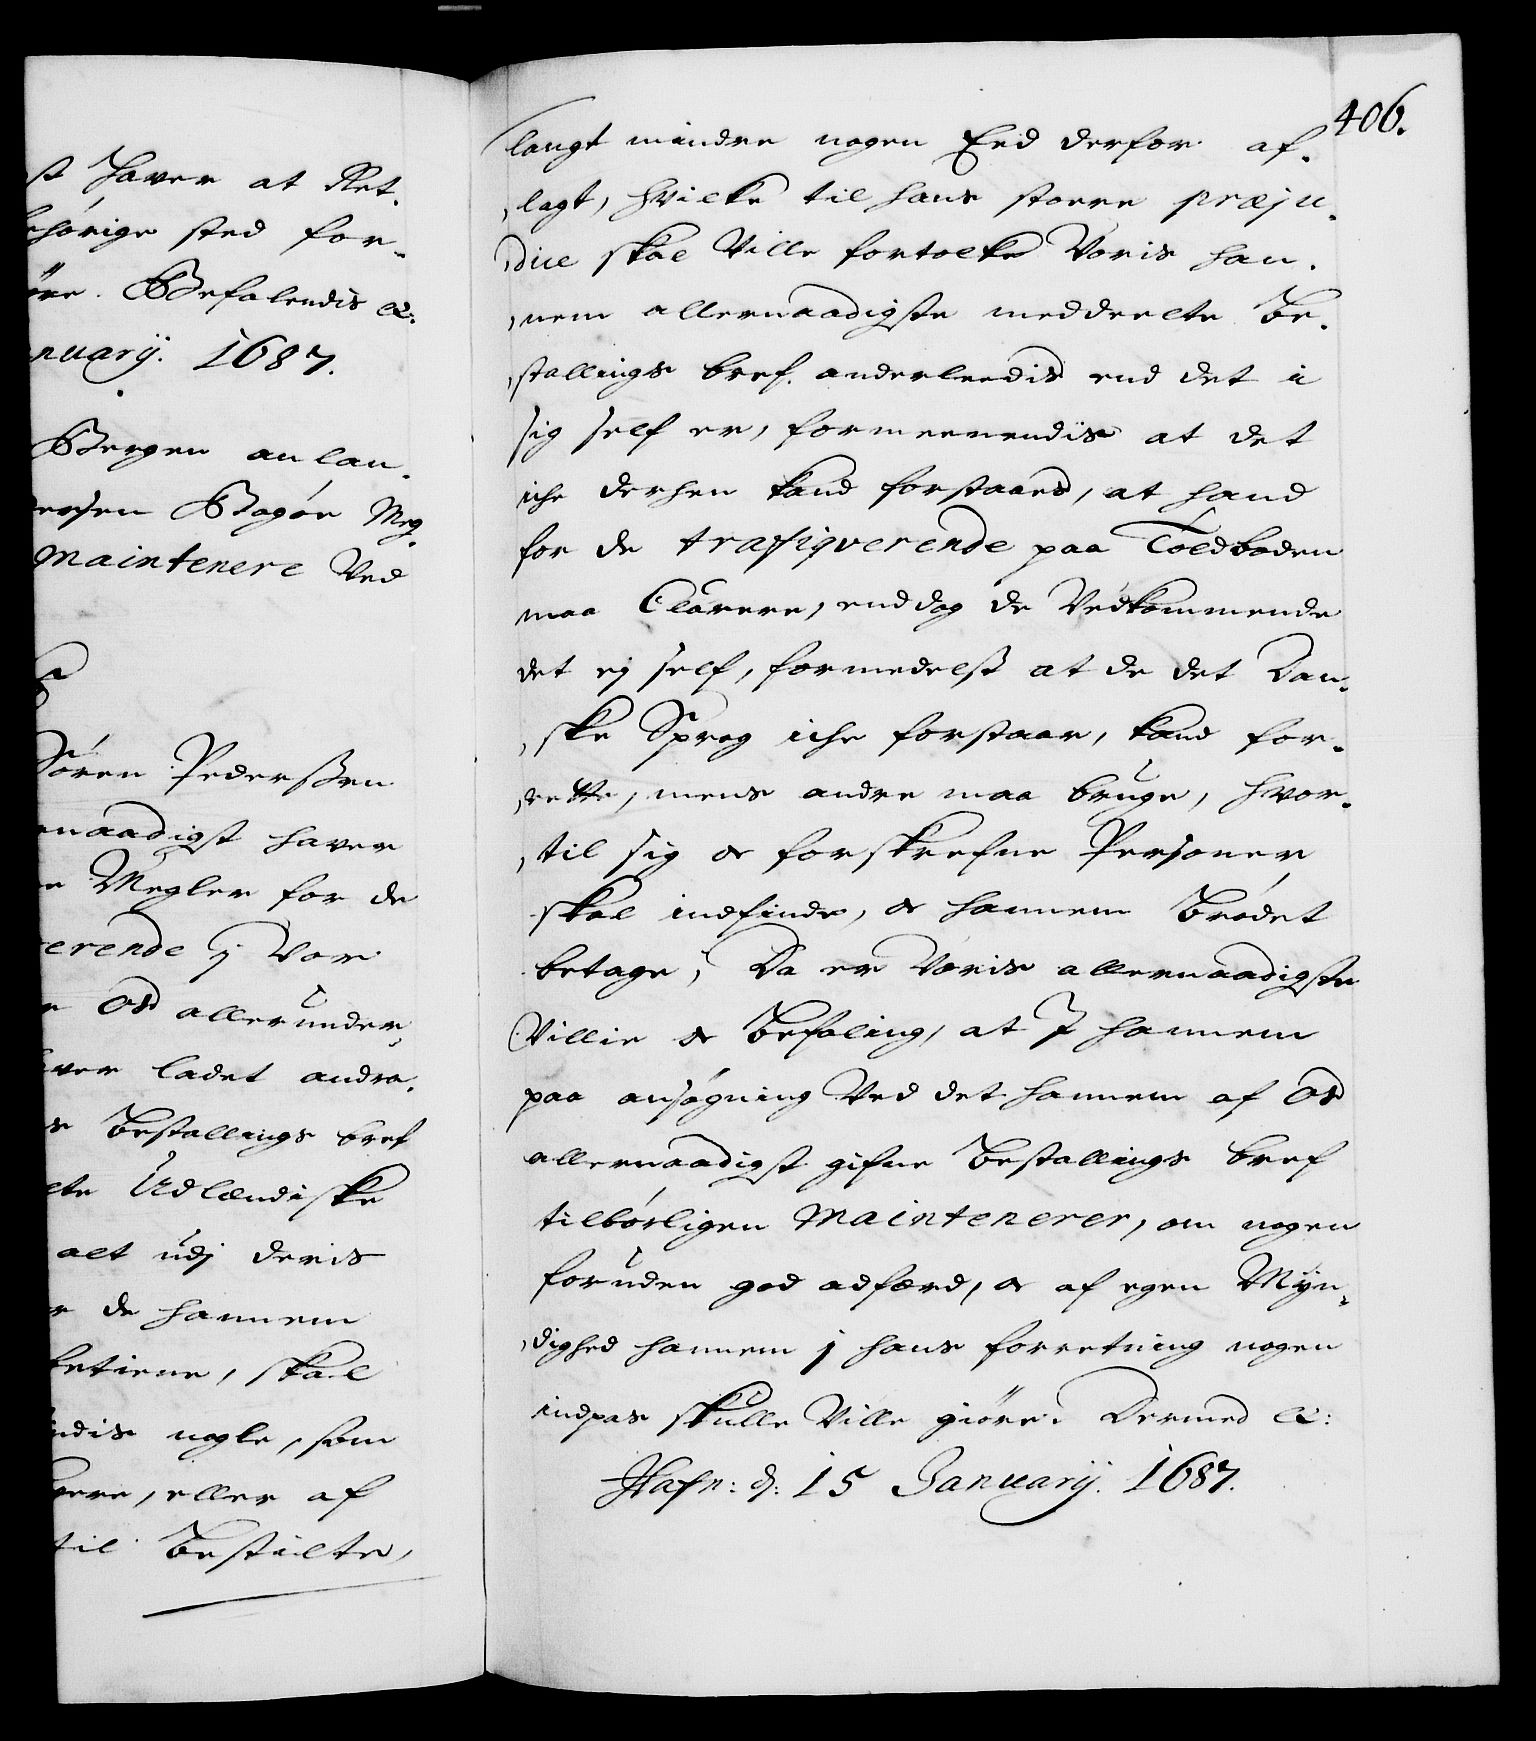 st haver at Ret¬
ehörige sted for¬
öre. Befalendis etc:
nuarij. 1687.
Bergen anlan¬
dersen Bagör Meg¬
maintenere ved
Sören Pederssen
naadigst haver
e Megler for de
erende j vor
e os allerunder¬
ver ladet andra¬
s bestallings bref
lte Udlændiske
alt udj deris
r de hannem
betiene, skal
ndis nogle, som
gere, eller af
til bestilte,
406.
langt mindre nogen Eed derfor af¬
lagt, hvilke til hans stoere præju¬
dice skal ville fortolke voris han¬
nem allernaadigste meddeelte be¬
stallings bref anderleedis end det i
sig self er, formeenendis at det
iche derhen kand forstaaes, at hand
for de trafiqverende paa Toldboden
maa Clarere, enddog de vedkommende
det ej self, formedelst at de det Dan¬
ske Sprog iche forstaar, kand for¬
rette, mens andre maa bruge, hvor¬
til sig & forskrefne Personer
skal indfinde, & hannem brödet
betage, Da er voris allernaadigste
villie & befaling, at I hannem
paa ansögning ved det hannem af os
allernaadigst gifne bestallings bref
tilbörligen Maintenerer, om nogen
foruden god adfærd, & af egen Myn¬
dighed hannem j hans forretning nogen
indpas skulle ville giöre. Dermed etc:
Hafn: d: 15 Januarij. 1687.